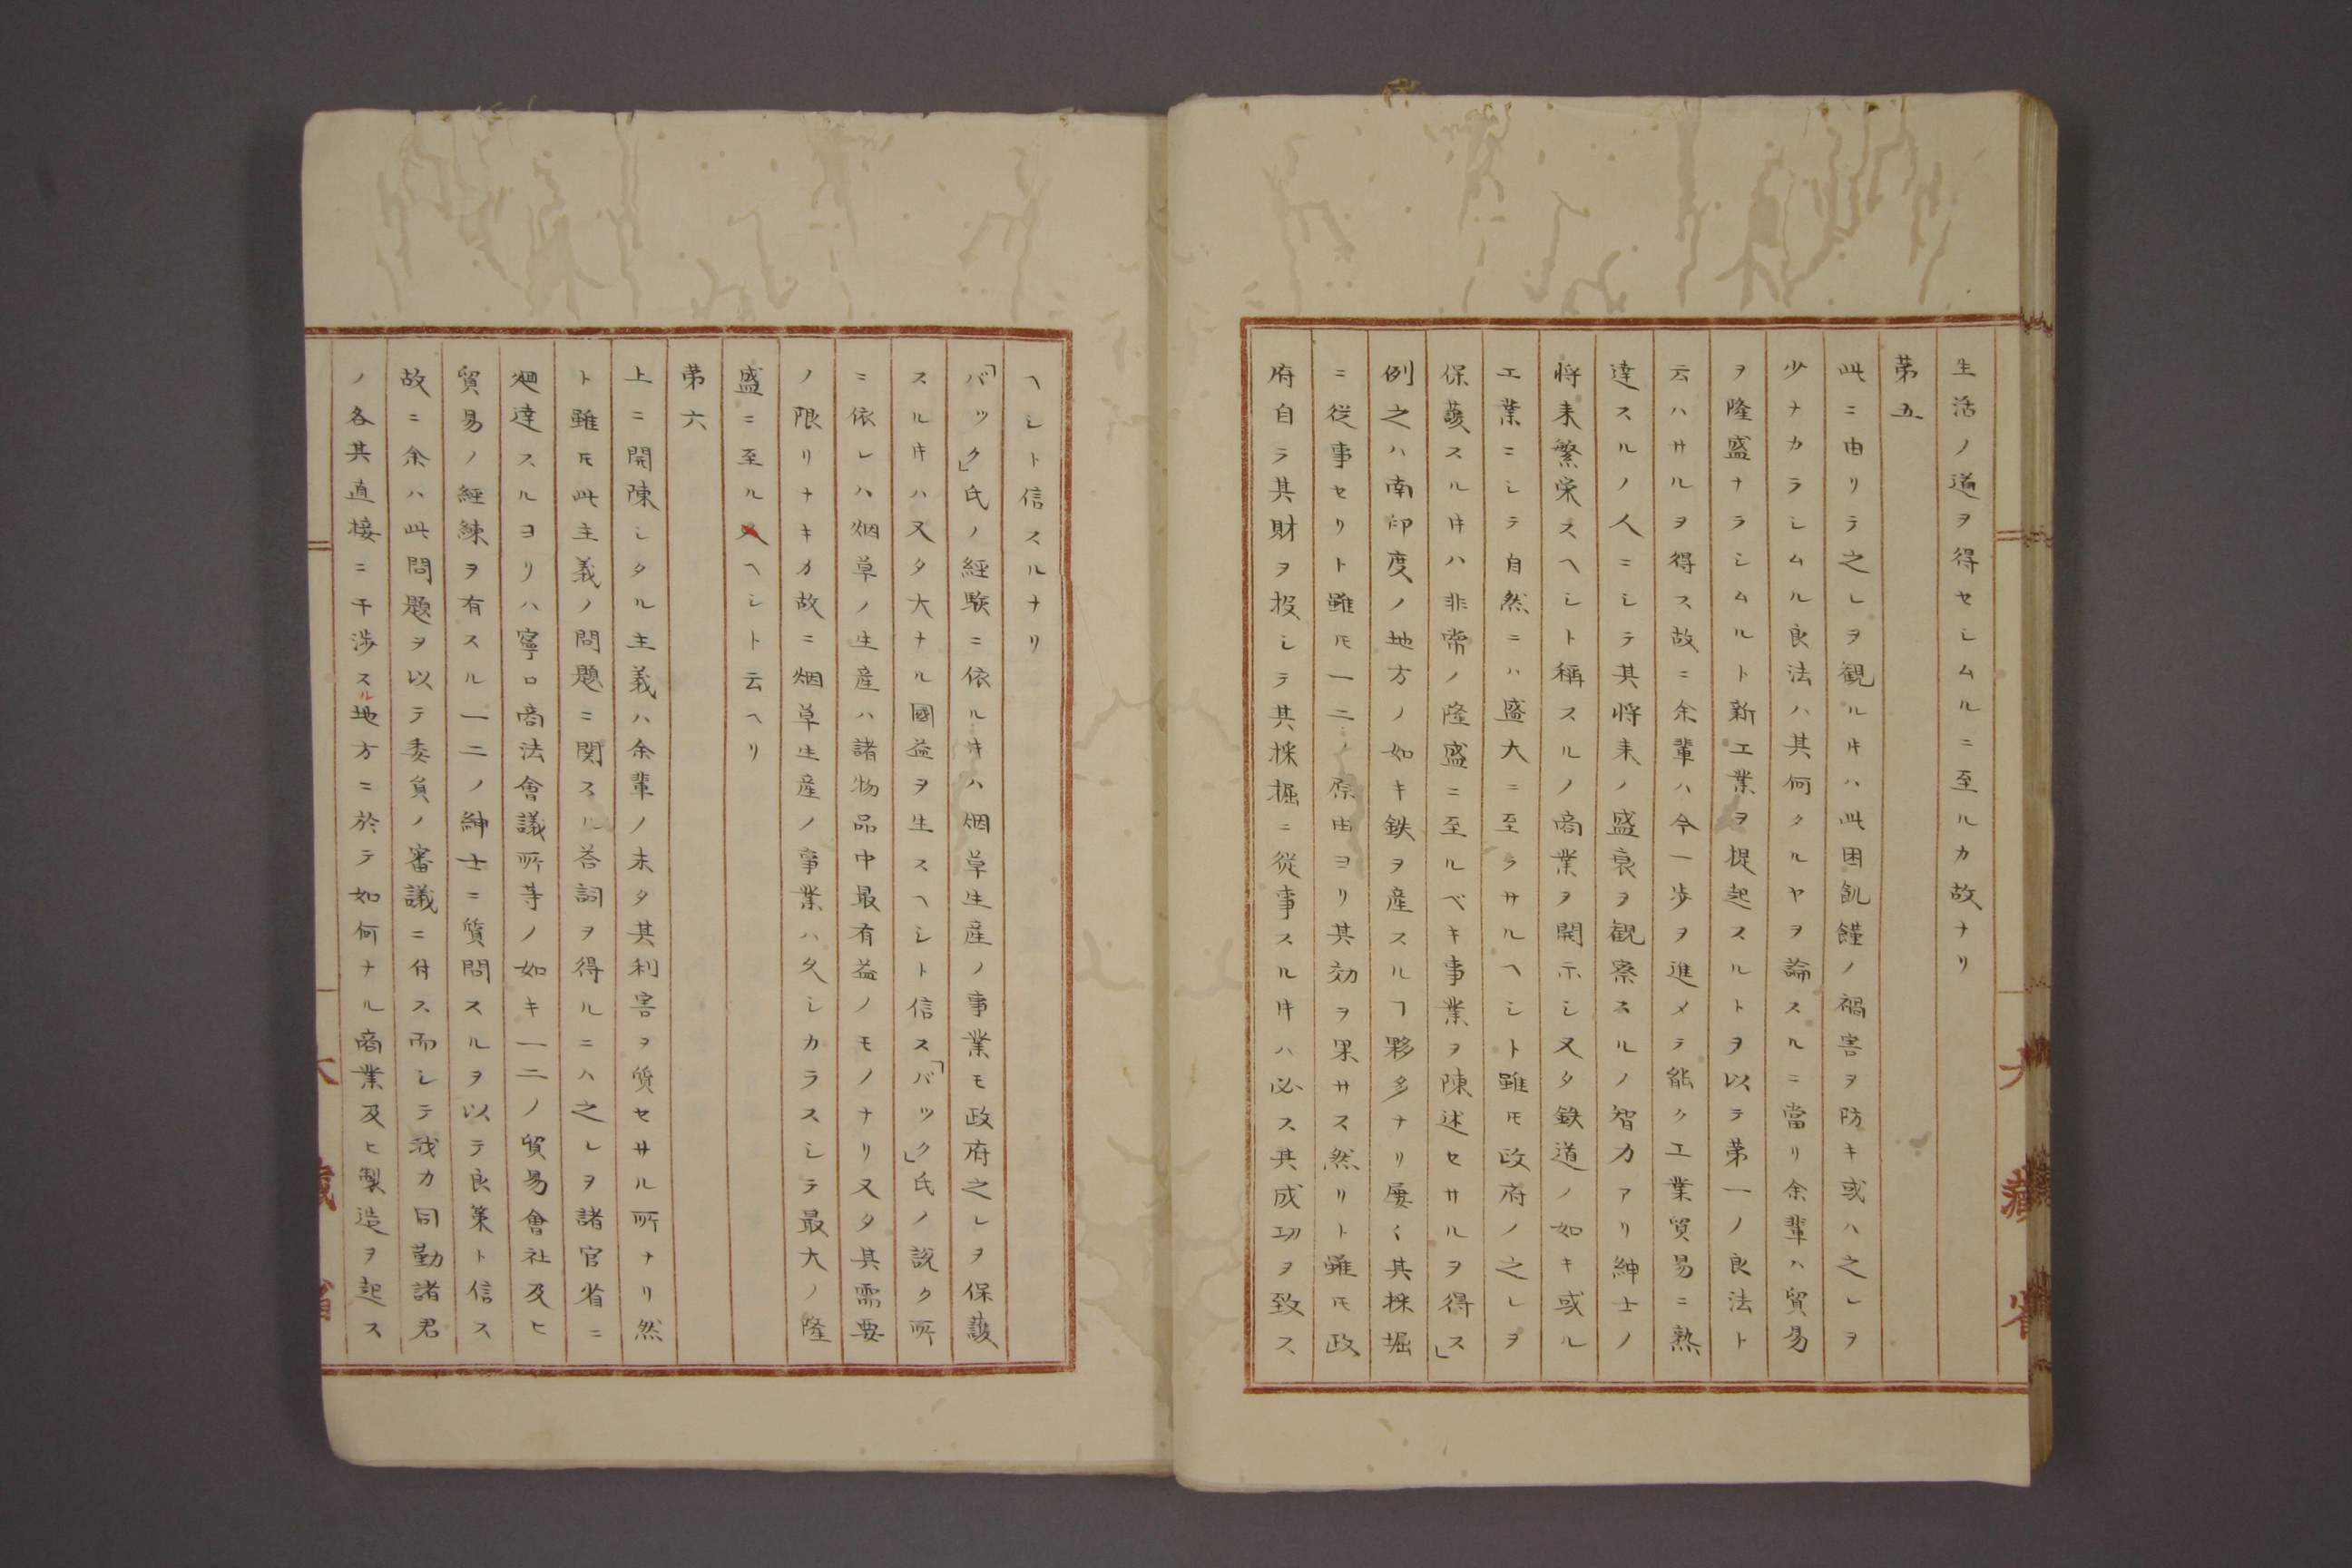 生活ノ道ヲ得セシムルニ至ルカ故ナリ
第五
此ニ由リテ之レヲ観ルヰハ此困飢饉ノ禍害ヲ防キ或ハ之レヲ
少ナカラシムル良法ハ其何クルヤヲ論スルニ當リ余輩ハ貿易
ヲ隆盛ナラシムルト新工業ヲ提起スルトヲ以テ第一ノ良法ト
云ハサルヲ得ス故ニ余輩ハ今一歩ヲ進メテ能ク工業貿易ニ熟
達スルノ人ニシテ其将来ノ盛衰ヲ観察スルノ智力アリ紳士ノ
将来繁栄スヘシト稱スルノ商業ヲ開示シ又タ鉄道ノ如キ或ル
工業ニシテ自然ニハ盛大ニ至ラサルヘシト雖モ政府ノ之レヲ
保護スルヰハ非常ノ隆盛ニ至ルベキ事業ヲ陳述セサルヲ得ス」
例之ハ南印度ノ地方ノ如キ鉄ヲ産スルヿ夥多ナリ屡々其採堀
ニ従事セリト雖モ一二ノ原由ヨリ其効ヲ果サス然リト雖モ政
府自ラ其財ヲ投シテ其採掘ニ従事スルヰハ必ス其成功ヲ致ス
ヘシト信スルナリ
「バック」氏ノ経験ニ依ルヰハ烟草生産ノ事業モ政府之レヲ保護
スルヰハ又タ大ナル國益ヲ生スヘシト信ス「バック」氏ノ説ク所
ニ依レハ烟草ノ生産ハ諸物品中最有益ノモノナリ又タ其需要
ノ限リナキカ故ニ烟草生産ノ事業ハ久シカラスシテ最大ノ隆
盛ニ至ルヘシト云ヘリ
第六
上ニ開陳シタル主義ハ余輩ノ未タ其利害ヲ質セサル所ナリ然
ト雖モ此主義ノ問題ニ関スル答詞ヲ得ルニハ之レヲ諸官省ニ
廻達スルヨリハ寧ロ商法會議所等ノ如キ一二ノ貿易會社及ヒ
貿易ノ經練ヲ有スル一二ノ紳士ニ質問スルヲ以テ良策ト信ス
故ニ余ハ此問題ヲ以テ委員ノ審議ニ付ス而シテ我カ同勤諸君
ノ各其直接ニ干渉スル地方ニ於テ如何ナル商業及ヒ製造ヲ起ス
大藏省